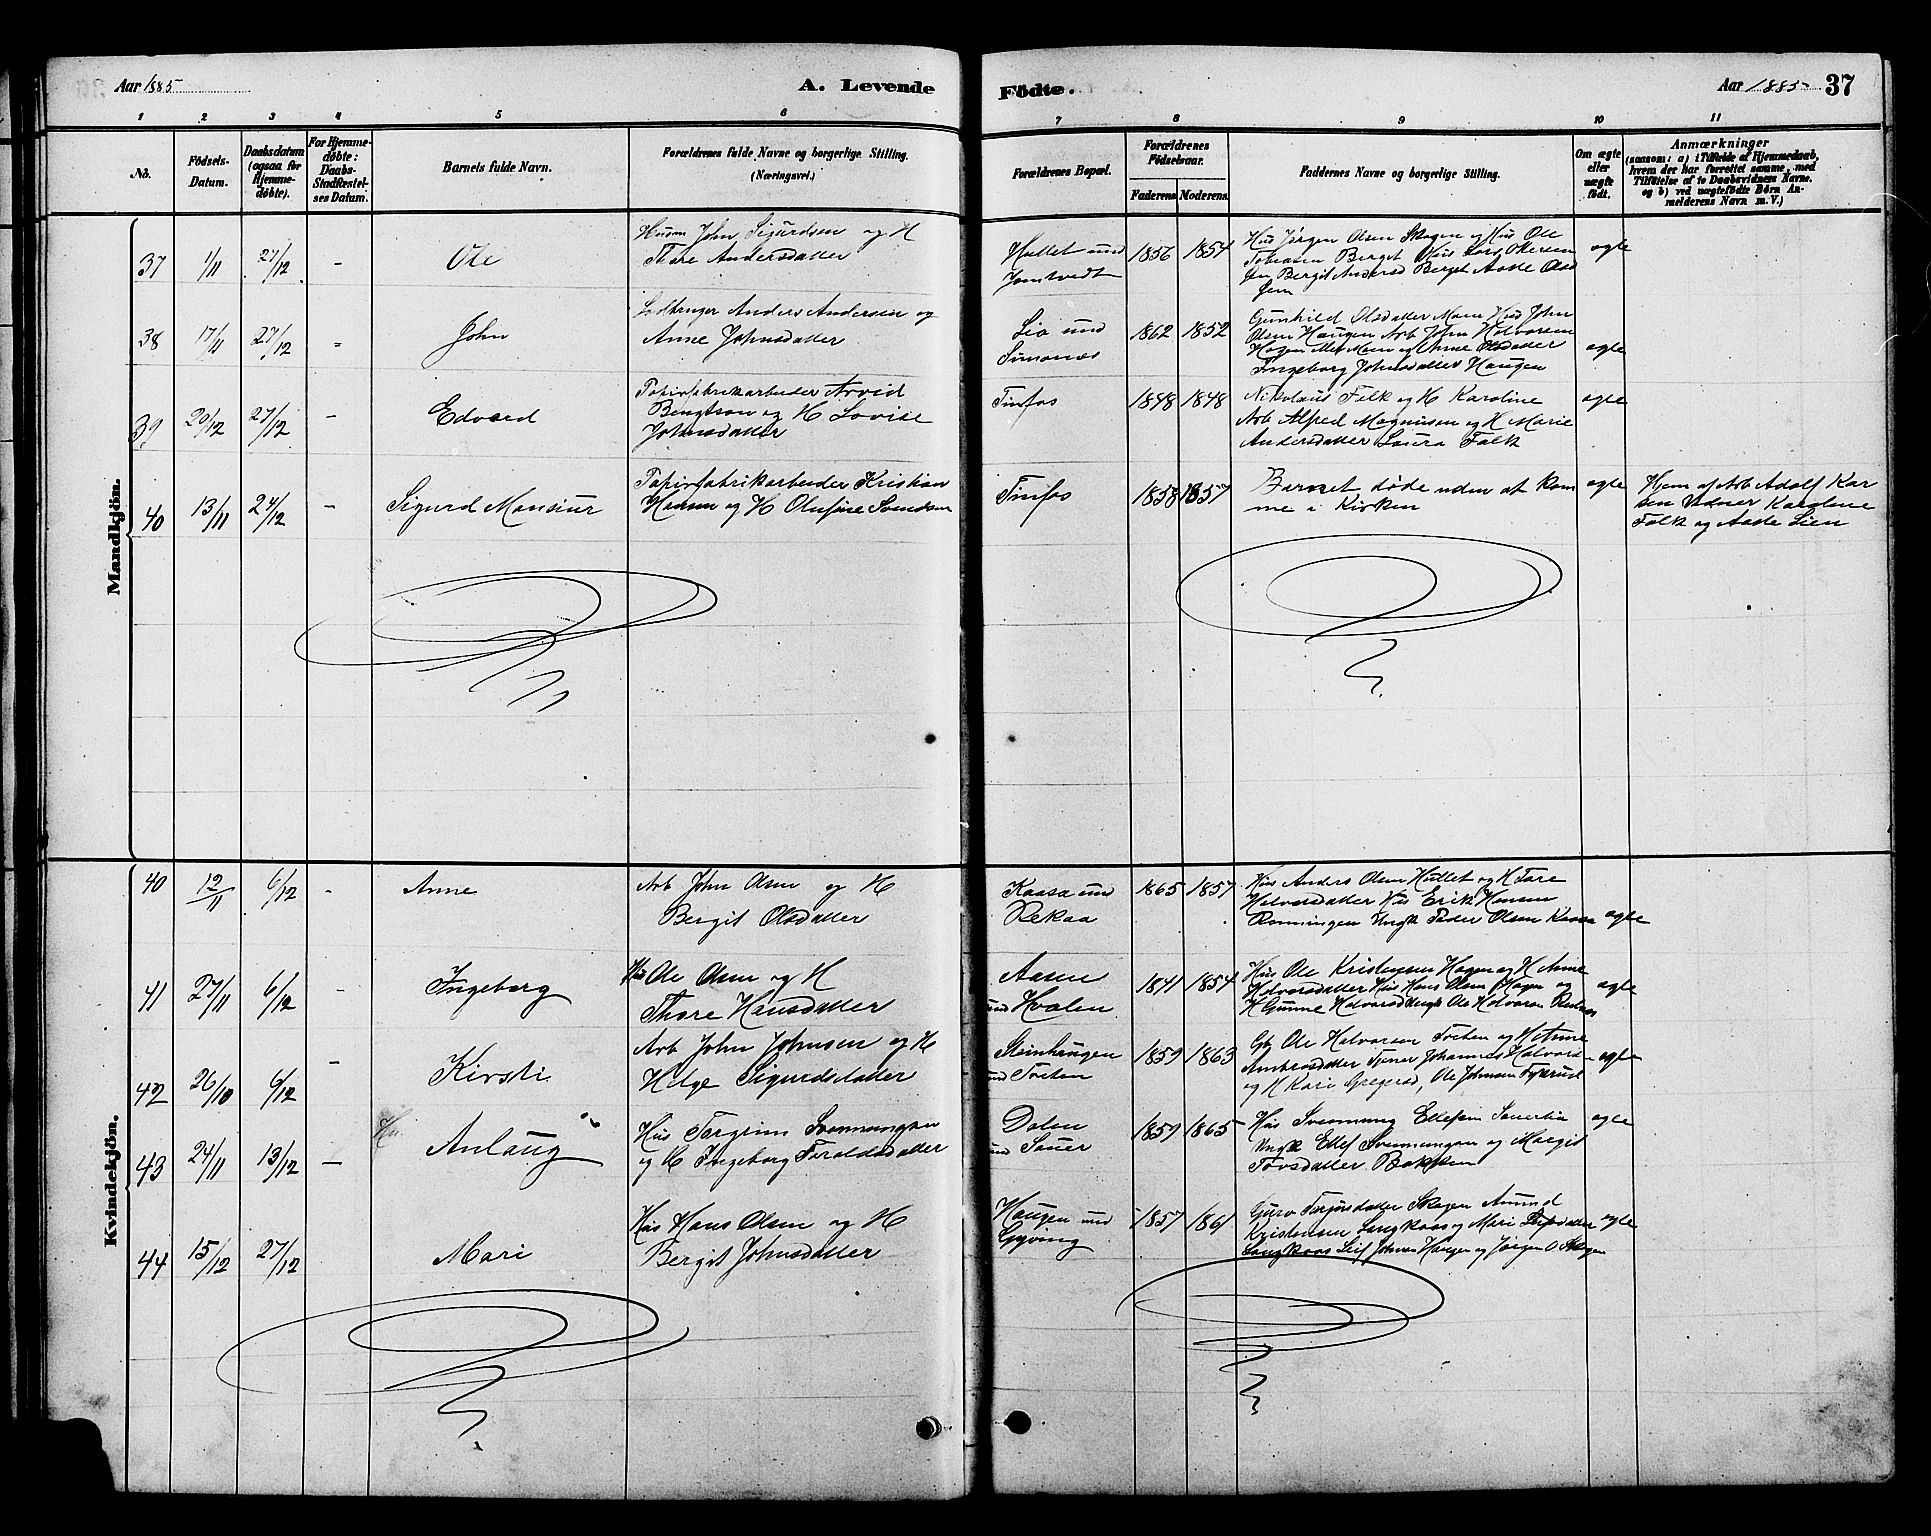 Aar 1885
A. Levende
Födte.
Aar 1885
37
1 2 3 4 5 6
7 8 9 10 11
No.
Födsels-
Datum.
Daabsdatum
(ogsaa for
Hjemme-
døbte).
For Hjemme-
døbte:
Daabs-
Stadfæstel-
ses Datum.
Barnets fulde Navn.
Forældrenes fulde Navne og borgerlige Stilling.
(Næringsvei.)
Forældrenes Bopæl.
Forældrenes
Födselsaar.
Faderens Moderens
Faddernes Navne og borgerlige Stilling.
Om ægte
eller
uægte
født.
Anmærkninger
(saasom: a) i Tilfælde af Hjemmedaab,
hvem der har forrettet samme, med
Tilföielse af to Daabsvidners Navne.
og b) ved uægtefödte Börn An-
melderens Navn m. V.)
Mandkjön.
37 1/11 27/12 - Ole
Husm John Sigurdsen og H
Thore Andersdatter
Hullet und
Jomtvedt
1856 1854
Hus Jörgen Olsen Skogen og Hus Ole
Tobiasen Berget Hus Lars
Bergit Andersd Berget Aaste Olsd
ægte
38 17/11 27/12 - John
Anders Andersen og
Anne Johnsdatter
Lia und
Simonæs
1862 1852
Gunhild Olsdatter Moen Hus John
Olsen Haugen Arb John Halvorsen
Hagen Moen og Anne Olsdatter
Ingeborg Johnsdatter Haugen
ægte
39 20/12 27/12 - Edvard
Papirfabrikarbeider Arvid
Bengtson og H Lovise
Johnsdatter
Tinfos
1848 1848
Nikolaus Falk og H Karoline
Arb Alfred Magnusen og H Marie
Andersdatter Laura Falk
ægte
40 13/11 24/12 - Sigurd Mansiur
Papirfabrikarbeider Kristian
Hansen og H Olufine Svendsen
Tinfos
1858 1857
Barnet döde uden at kom
me i Kirken
ægte
Hjem af Arb Adolf Kar
sen Vidner Karoline
Falk og Aaste Lien
Kvindekjön.
40 12/11 6/12 - Anne
Arb John Olsen og H
Bergit Olsdatter
Kaasa und
Rekaa
1865 1857
Hus Anders Olsen Hullet og H Tore
Halvorsdatter Hus Erik Hansen
Rønningen Ungk Peder Olsen Kaasa
ægte
41 27/11 6/12 - Ingeborg
Hus Ole Olsen og H
Thore Hansdatter
Aasen
und Hvalen
1841 1854
Hus Ole Kristensen Hagen og H Anne
Halvorsdatter Hus Hans Olsen Hagen og
H Gunne Halvorsd Ungk Ole Halvorsen
ægte
42 26/10 6/12 - Kirsti
Arb John Johnsen og H
Helge Sigurdsdatter
Steinhaugen
und Torten
1859 1863
Gb Ole Halvorsen Torten og H Anne
Ambrosdatter Tjener Johannes Halvors
og H Kari Gregersd, Ole Johnsen
ægte
43 24/11 13/12 - Anlaug
Hus Torgrim Svennungsen
og H Ingeborg Toraldsdatter
Dalen
und Sauer
1859 1865
Hus Svennung Ellefsen
Ungk Ellef Svennungsen og Margit
Tovsdatter Bakken
ægte
44 15/12 27/12 Mari
Hus Hans Olsen og H
Bergit Johnsdatter
Haugen und
Gyving
1857 1861
Guro Torjusdatter Skogen Amund
Kristensen Langkaas og Mari
Langkaas Leif Johnsen Haugen og Jörgen O Skogen
ægte